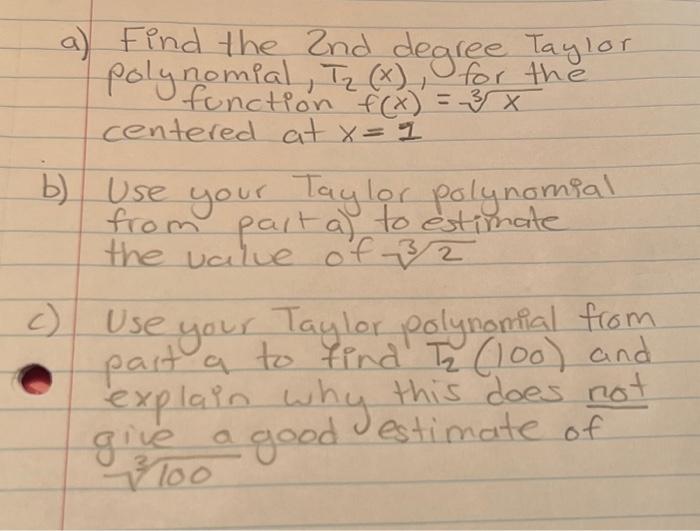 a) Find the 2nd degree Taylor
polynomial, T₂ (x), for the
function f(x) = ∛x
centered at x = 1
b) Use your Taylor polynomial
from part a) to estimate
the value of ∛2
c) Use your Taylor polynomial from
part a to find T₂ (100) and
explain why this does not
give a good estimate of
∛100